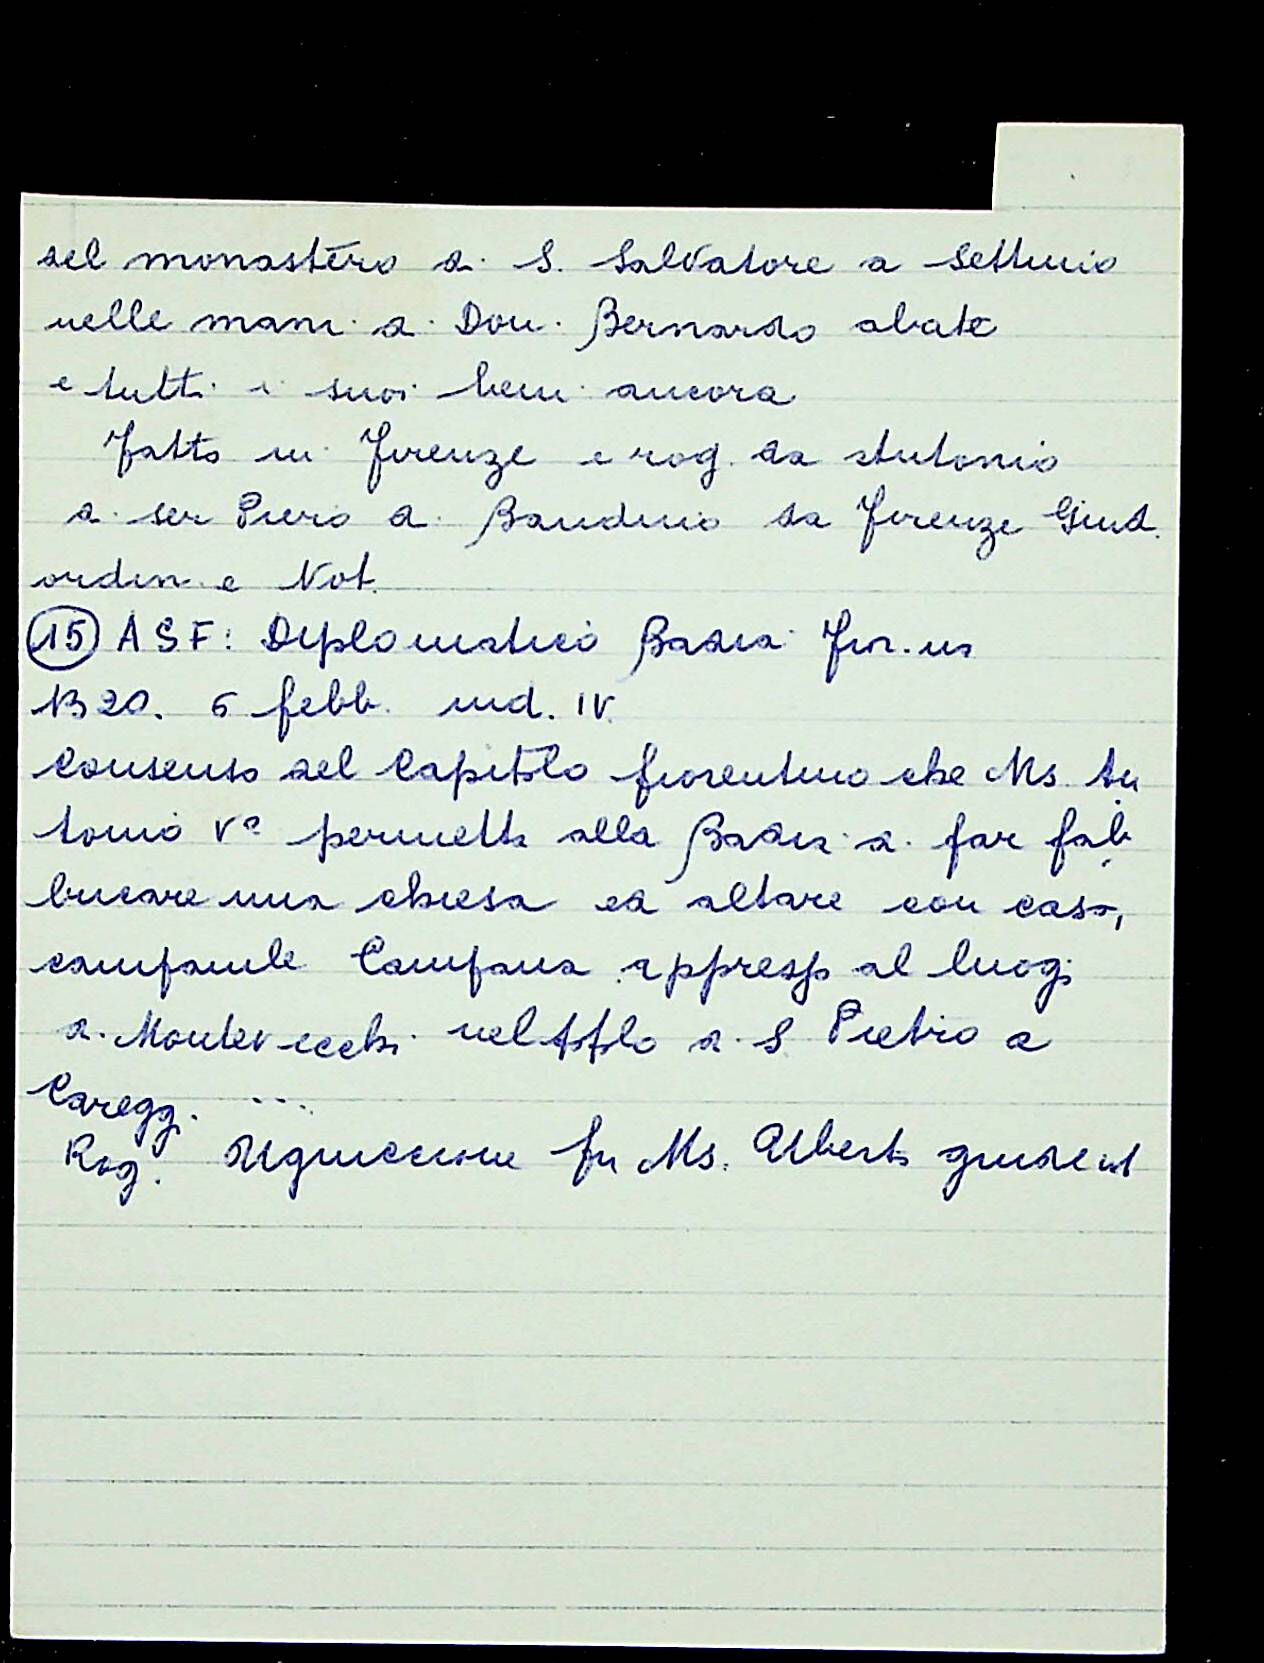 del monastero di S. Salvatore a Settimo
nelle mani di Don Bernardo abate
e tutti i suoi beni ancora
Fatto in Firenze e rog. da Antonio
di ser Piero di Bandino da Firenze Giud.
ordin. e Not.
15 ASF: Diplomatico Badia Fior.na
1320. 6 febb. ind. IV.
Consenso del Capitolo fiorentino che Ms. An
tonio Vº permetta alla Badia di far fab
bricare una chiesa ed altare con casa,
campanile Campana appresso al luogo
di Montevecchi nel popolo di S. Pietro a
Caregg. ...
Rog. Uguccione fu Ms. Alberto giudice